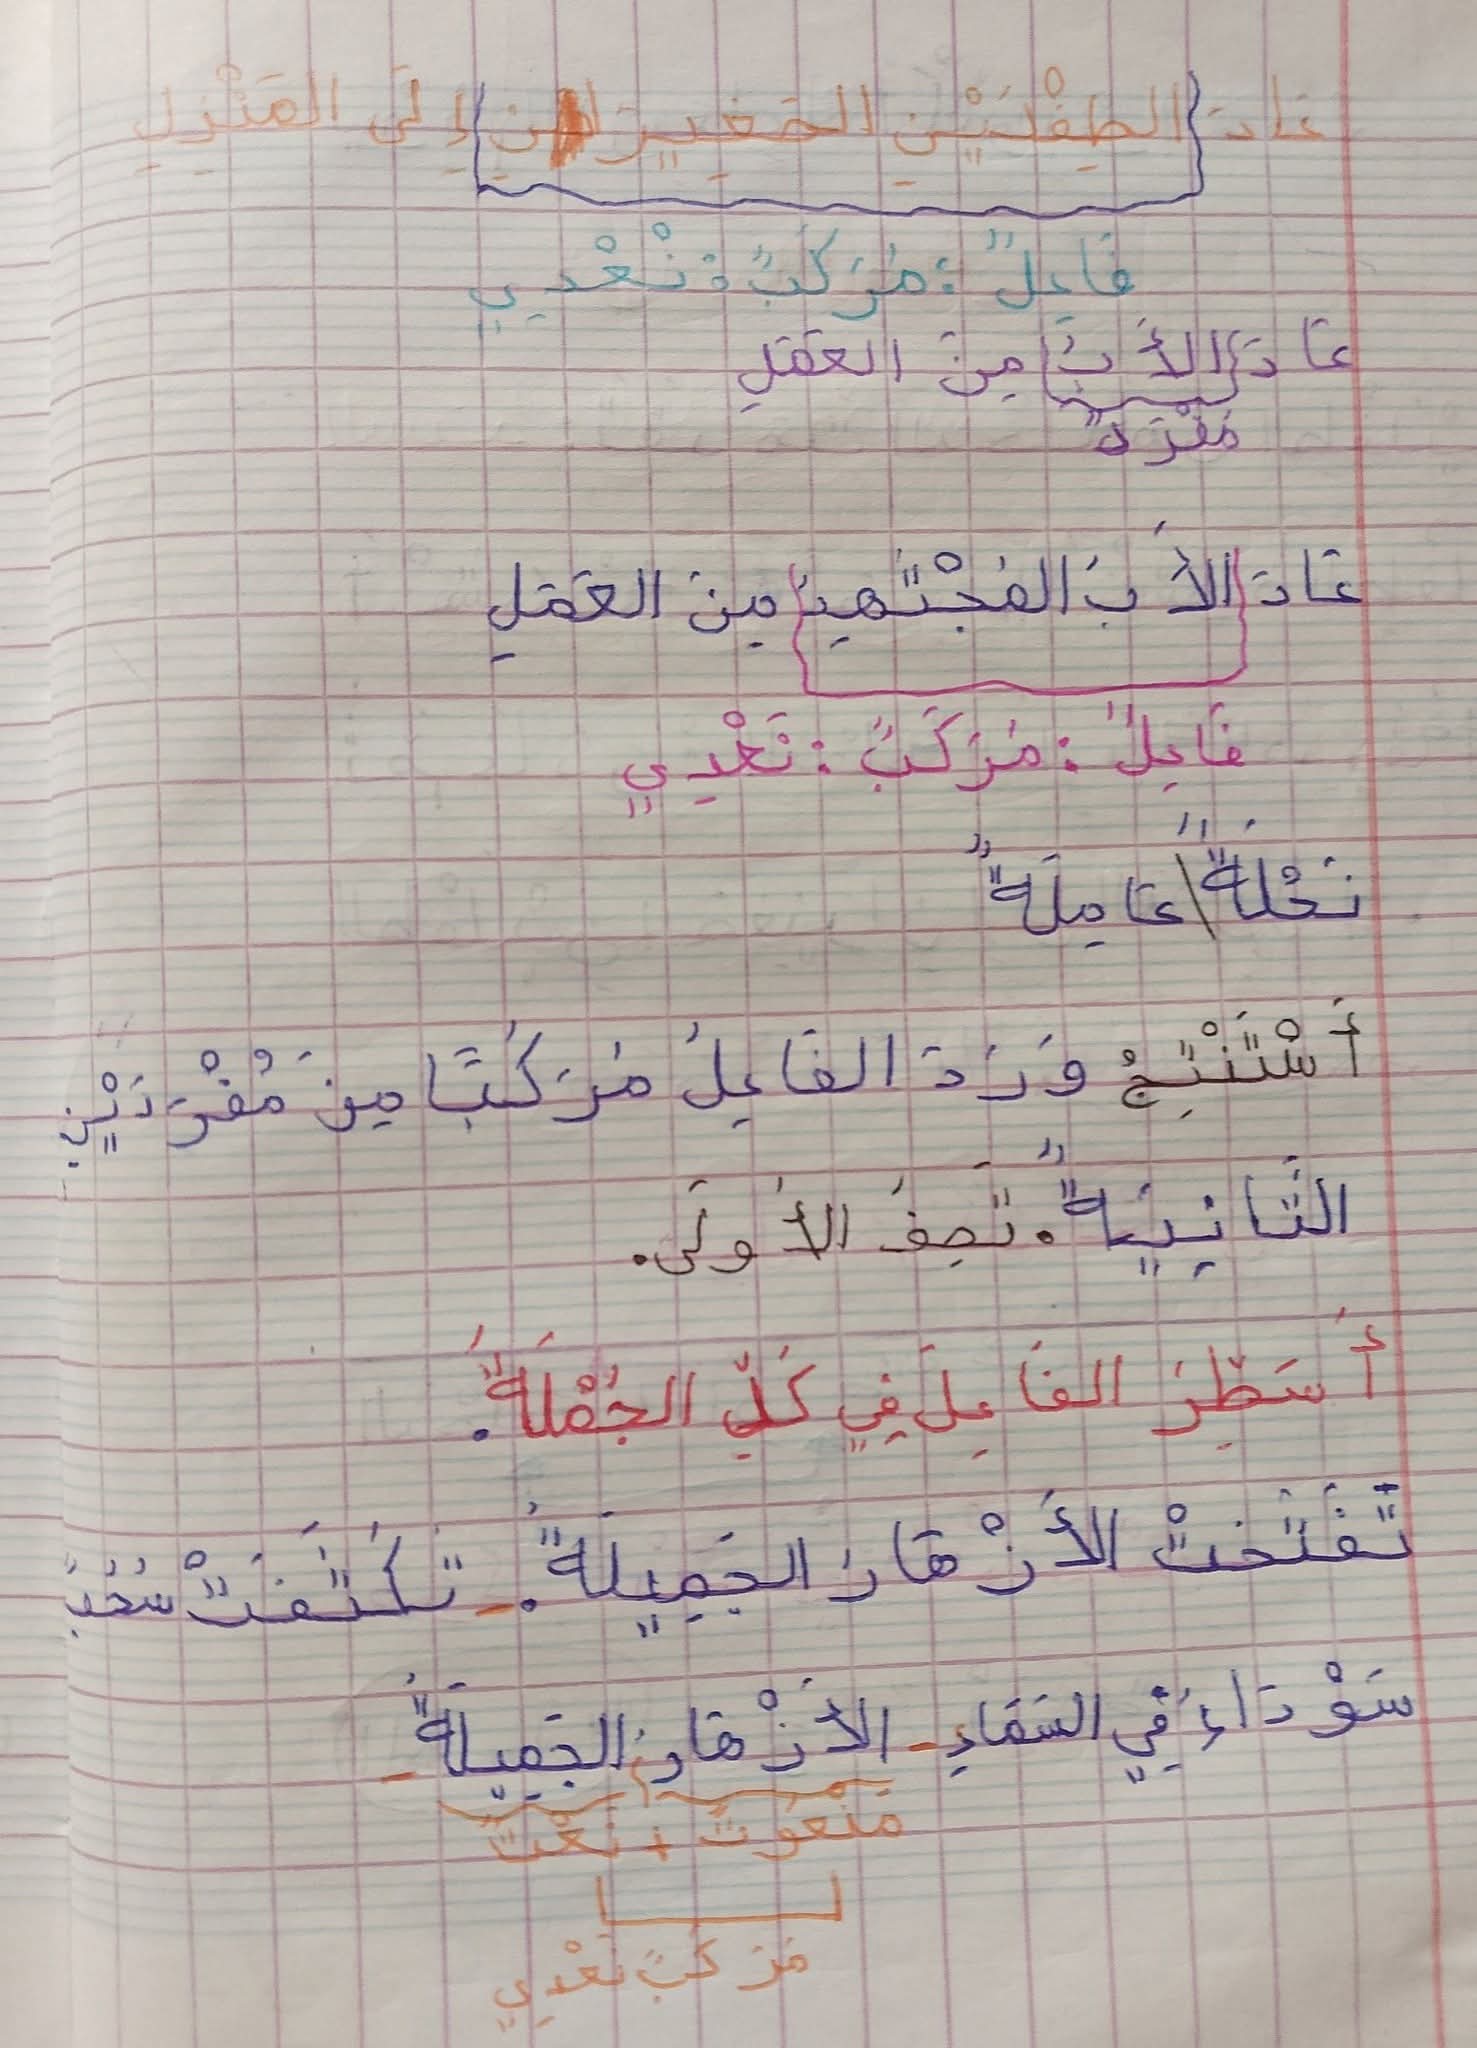 عَادَ الطِفْلَيْنِ الصَغِيرَيْنِ إِلَى المَنْزِلِ
فَاعِلٌ : مُرَكَبٌ : نَعْتِي
عَادَ الأَبُ مِنَ العَمَلِ
مُفْرَدٌ
عَادَ الأَبُ المُجْتَهِدُ مِنَ العَمَلِ
فَاعِلٌ : مُرَكَبٌ : نَعْتِيٍ
نَحْلَةٌ \ عَامِلَةٌ
أَسْتَنْتِجُ وَرَدَ الفَاعِلُ مُرَكَبًا مِنْ مُفْرَدَيْنِ
الثَانِيَةٌ . تَصِفُ الأُولَى .
أُسَطِرُ الفَاعِلَ فِي كُلِّ الجُمْلَةُ .
تَفَتَحَتْ الأَزْهَارُ الجَمِيلَةُ . - تَكَثَفَتْ سُحُبٌ
سَوْدَاءُ فِي السَمَاءِ - الأَزْهَارُ الجَمِيلَةُ -
مَنْعُوتٌ + نَعْتٌ
مُرَكَبٌ نَعْتِيٍ